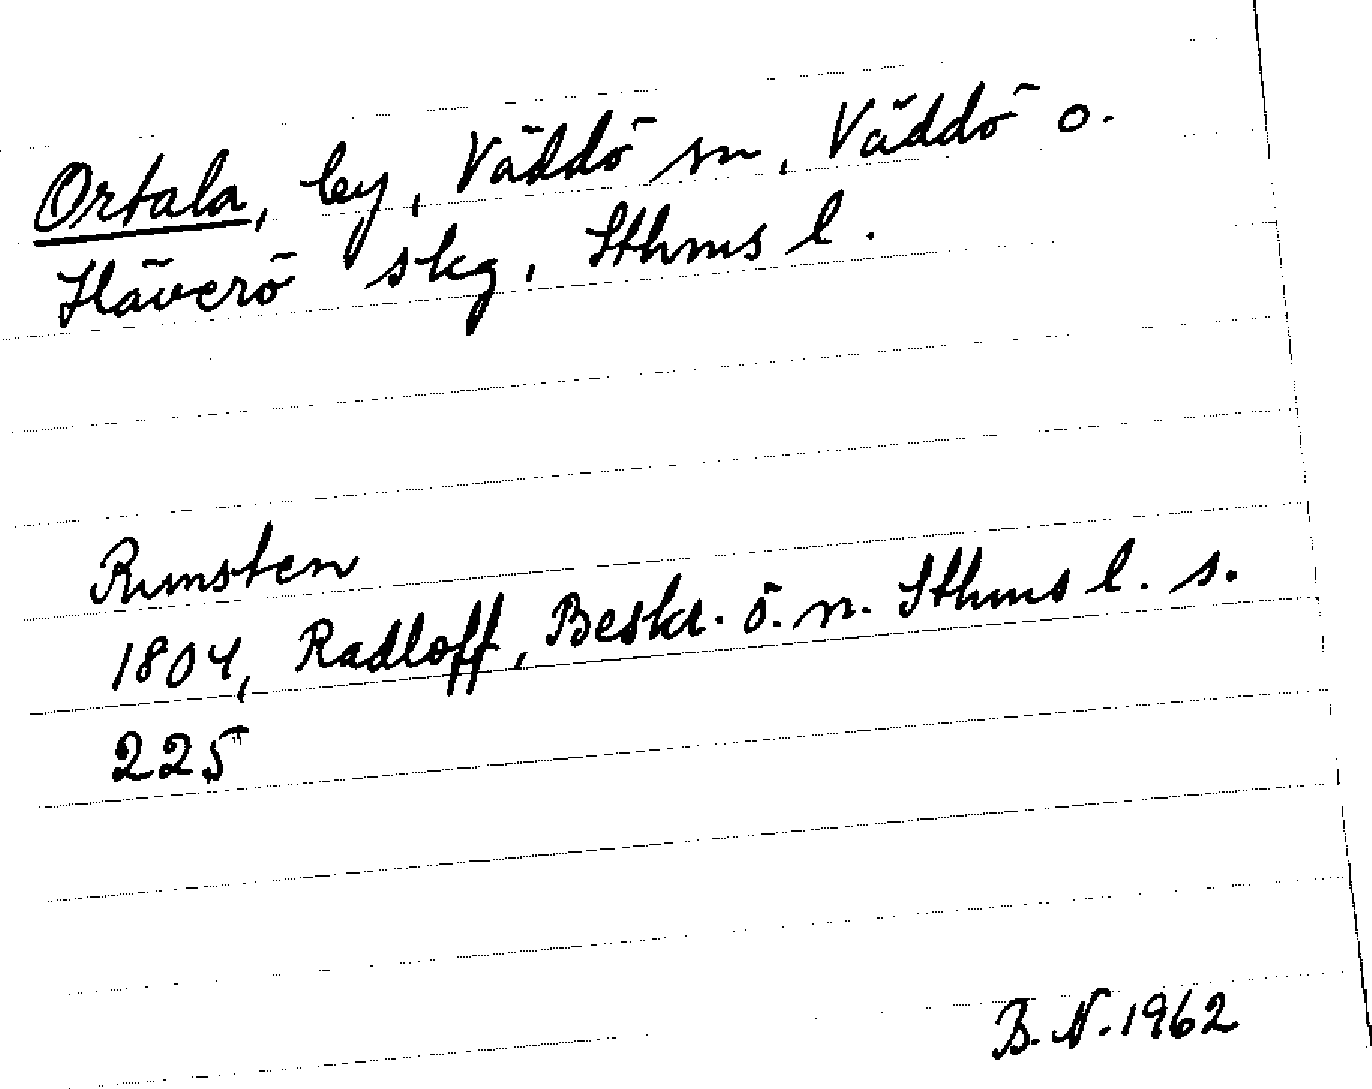 Ortala, by, Väddö sn, Väddö o.
Häverö skg, Sthms l.
Runsten
1804, Radloff, Beskr. ö. n. Sthms l. s.
225
B. N. 1962